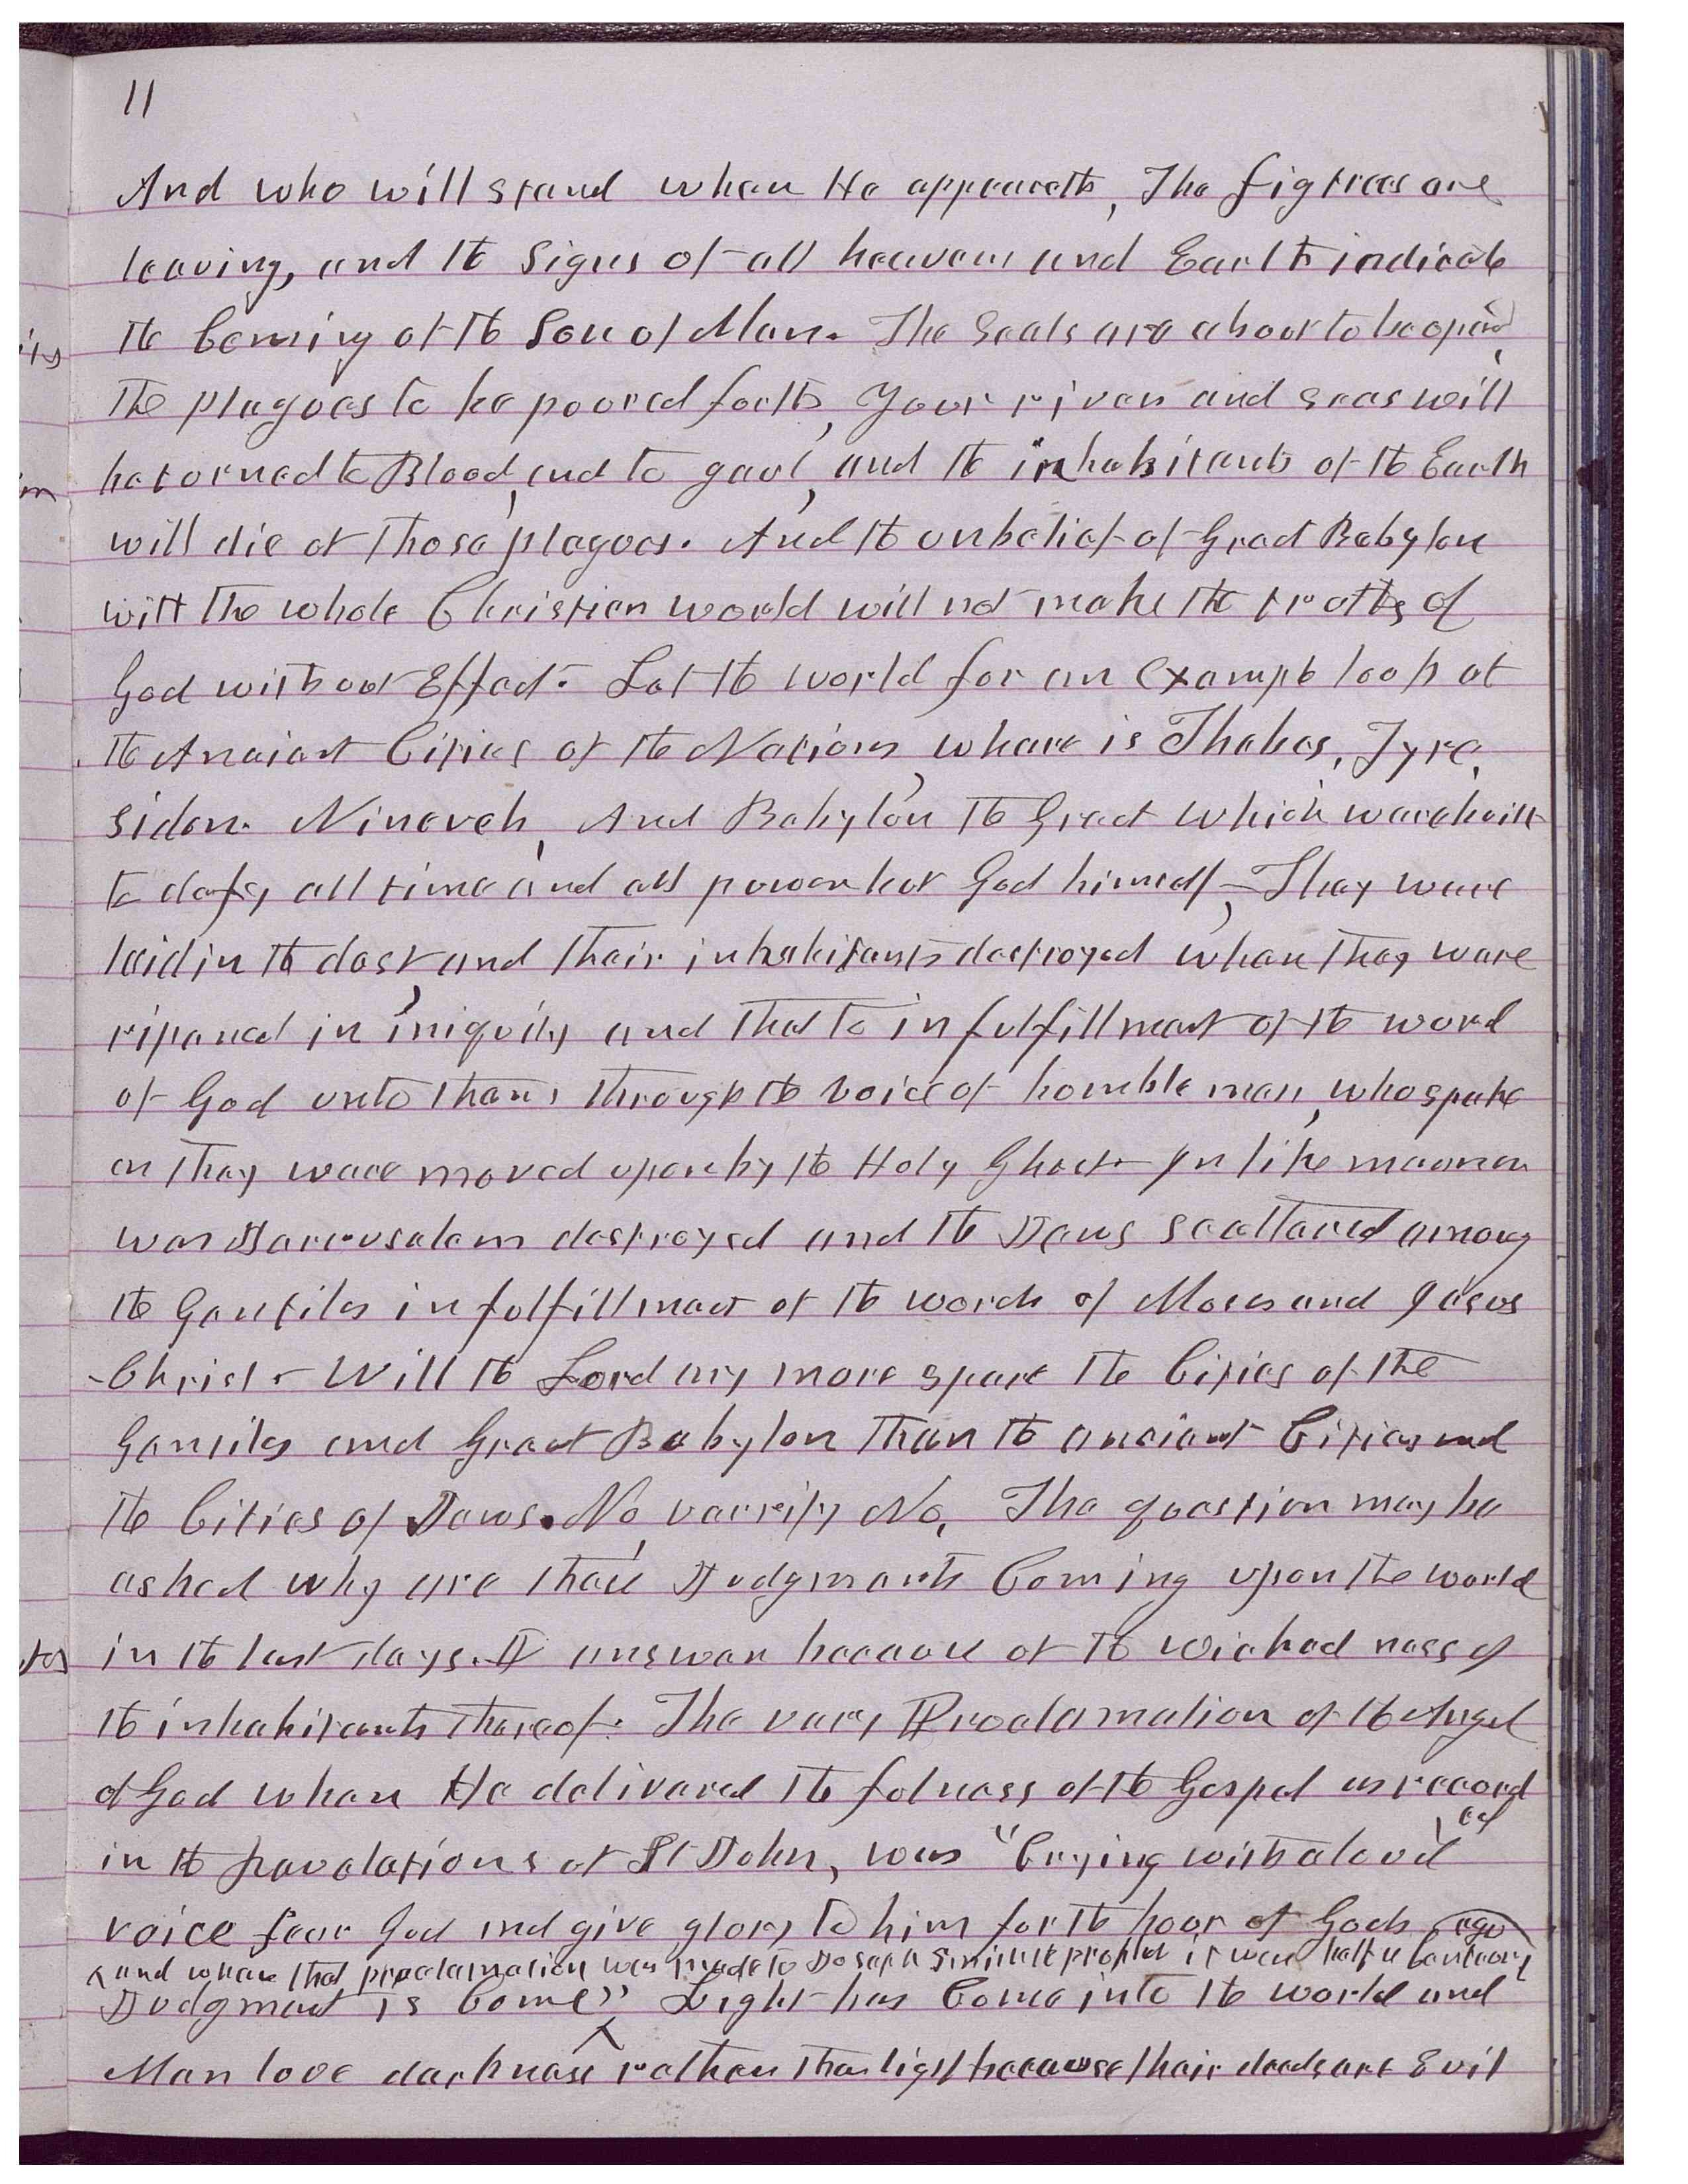 11
And who will stand when He appeareth, The fig trees are
leaving, and the Signs of all heaven and Earth indicate
the Coming of the Son of Man. The Seals are about to be opened,
The plagues to be poured forth, Your rivers and seas will
be turned to Blood, and to gaul, and the inhabitants of the Earth
will die of those plagues. And the unbelief of Great Babylon
with the whole Christian world will not make the truths of
God without Effect. Let the world for an Example look at
the Ancient Cities of the Nations, where is Thebes, Tyre,
Sidon. Nineveh, And Babylon the Great which ware built
to defy all time and all power but God himself, They ware
laid in the dust, and their inhabitants destroyed when they ware
ripened in iniquity and that to in fulfillment of the word
of God unto them, through the voice of humble men, who spake
as they ware moved upon by the Holy Ghost. In like manner
was Jarrusalem destroyed and the Jews scattered among
the Gentiles in fulfillment of the words of Moses and Jesus
Christ. Will the Lord any more spare the Cities of the
Gentiles and Great Babylon than the ancient Cities and
the Cities of Jews. No, verrily No, The question may be
asked why are these Judgments Coming upon the world
in the last days. I answer because of the wickedness of
the inhabitants thereof. The very Proclamation of the Angel
of God when He delivered the fulness of the Gospel as record
ed
in the Revelations of St John, was "Crying with a loud
voice fear God and give glory to him for the hour of Gods
ago
and when that proclamation was made to Joseph Smith the prophet it was half a Century
Judgment is Come" Light has Come into the world and
Man love darkness rather than light because their deeds are Evil